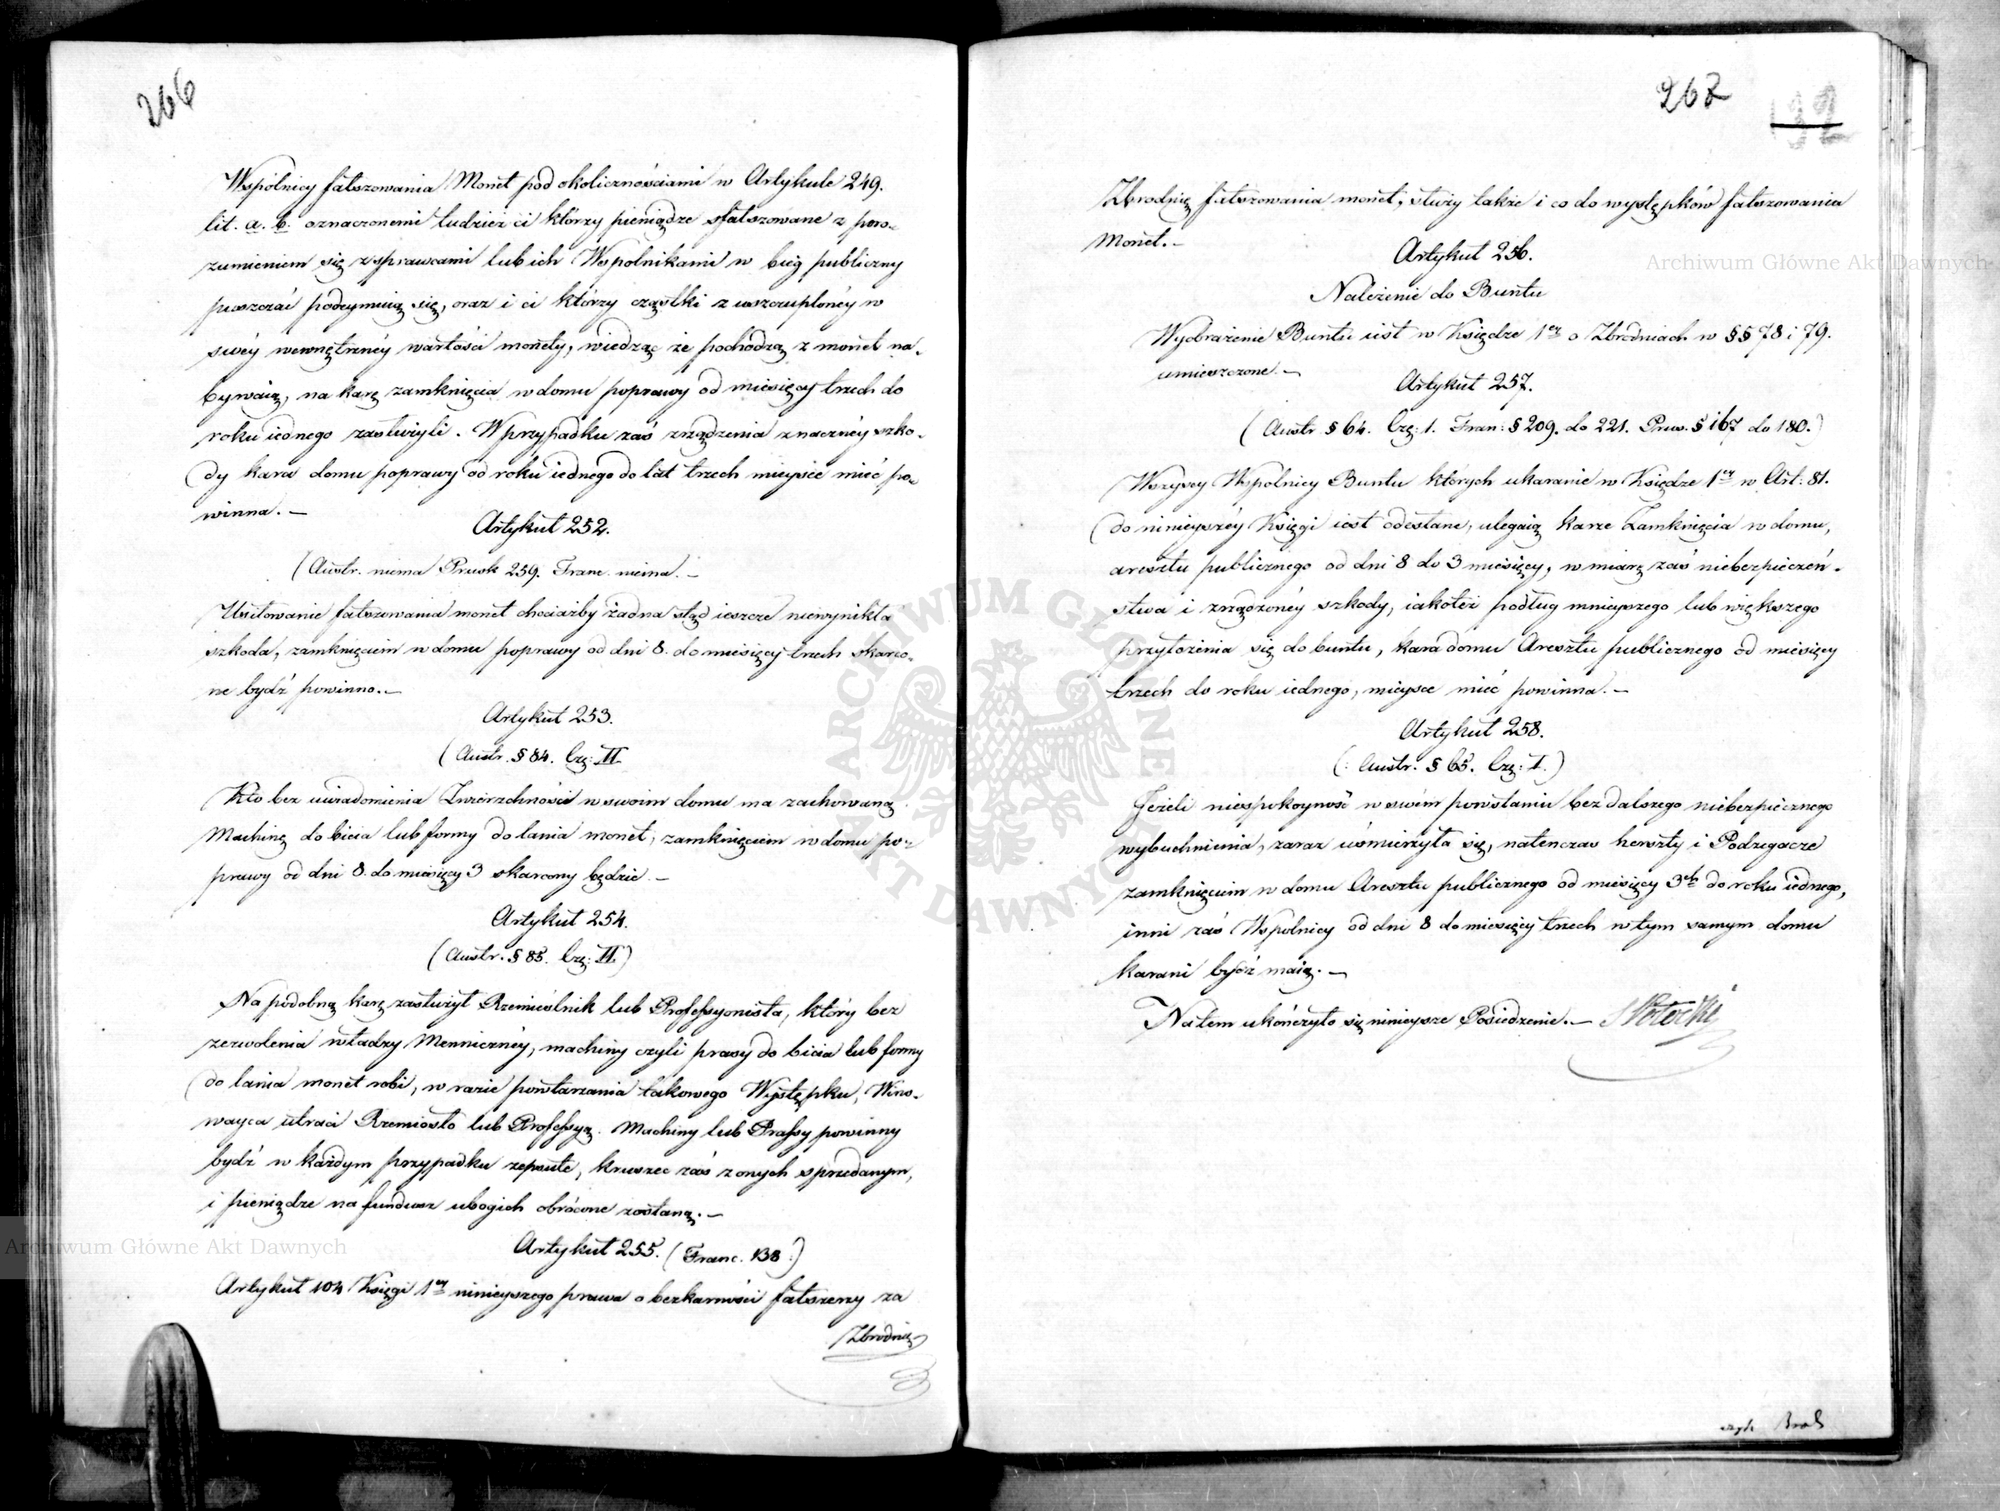 266
Wspólnicy fałszowania Monet pod okolicznościami w Artykule 249.
lit. a. b. oznaczonemi tudzież ci którzy pieniądze sfałszowane z poro-
zumieniem się z sprawcami lub ich Wspolnikami w bieg publiczny
puszczać podeymuią się, oraz i ci którzy cząstki z uszczuplonéy w
swéy wewnętrznéy wartości monety, wiedząc że pochodzą z monet na-
bywaią, na karę zamknięcia w domu poprawy od miesięcy trzech do
roku iednego zasłużyli. W przypadku zaś zrządzenia znacznéy szko-
dy kara domu poprawy od roku iednego do lat trzech mieysce mieć po-
winna. –
Artykuł 252.
(Austr. niema Prusk 259. Franc. niema. –
Usiłowanie fałszowania monet chociażby żadna stąd ieszcze niewynikła
szkoda, zamknięciem w domu poprawy od dni 8. do miesięcy trzech skarco-
ne bydź powinno. –
Artykuł 253.
(Austr. § 84. Czę: II
Kto bez uwiadomienia Zwierzchności w swoim domu ma zachowaną
Machinę do bicia lub formy do lania monet, zamknięciem w domu po-
prawy od dni 8. do miesięcy 3 skarcony będzie. –
Artykuł 254.
(Austr. § 85. Czę: II)
Na podobną karę zasłużył Rzemieślnik lub Professyonista, który bez
zezwolenia władzy Menniczney, machiny czyli prasy do bicia lub formy
do lania monet robi, w razie powtarzania takowego Występku, Wino-
wayca utraci Rzemiosło lub Professyą. Machiny lub Prassy powinny
bydź w każdym przypadku zepsute, kruszec zaś z onych sprzedanym,
i pieniądze na fundusz ubogich obrócone zostaną. –
Artykuł 255. (Franc. 138.)
Artykuł 104 Księgi 1éy ninieyszego prawa o bezkarności fałszerzy za
Zbrodnię
267
132
Zbrodnię fałszowania monet, służy także i co do występków fałszowania
Monet. –
Artykuł 256.
Należenie do Buntu
Wyobrażenie Buntu iest w Księdze 1éy o Zbrodniach w §§ 78 i 79.
umieszczone. –
Artykuł 257.
(Austr § 64. Czę: 1. Fran: § 209. do 221. Prus. § 167 do 180.)
Wszyscy Wspólnicy Buntu których ukaranie w Księdze 1éy w Art: 81.
do ninieyszéy Księgi iest odesłane, ulegaią karze Zamknięcia w domu,
aresztu publicznego od dni 8 do 3 miesięcy, w miarę zaś niebezpieczeń-
stwa i zrządzonéy szkody, iakoteż podług mnieyszego lub większego
przyłożenia się do buntu, kara domu Aresztu publicznego od miesięcy
trzech do roku iednego, mieysce mieć powinna. –
Artykuł 258.
(: Austr. § 65. Czę: I.)
Jeżeli niespokoyność w swém powstaniu bez dalszego niebezpiecznego
wybuchnienia, zaraz uśmierzyła się, natenczas herszty i Podzegacze
zamknięciem w domu Aresztu publicznego od miesięcy 3ch do roku iednego,
inni zaś Wspólnicy od dni 8 do miesięcy trzech w tym samym domu
karani być maią. –
Na tem ukończyło się ninieysze Posiedzenie. – S Potocki
Archiwum Główne Akt Dawnych
Archiwum Główne Akt Dawnych
ARCHIWUM GŁÓWNE AKT DAWNYCH